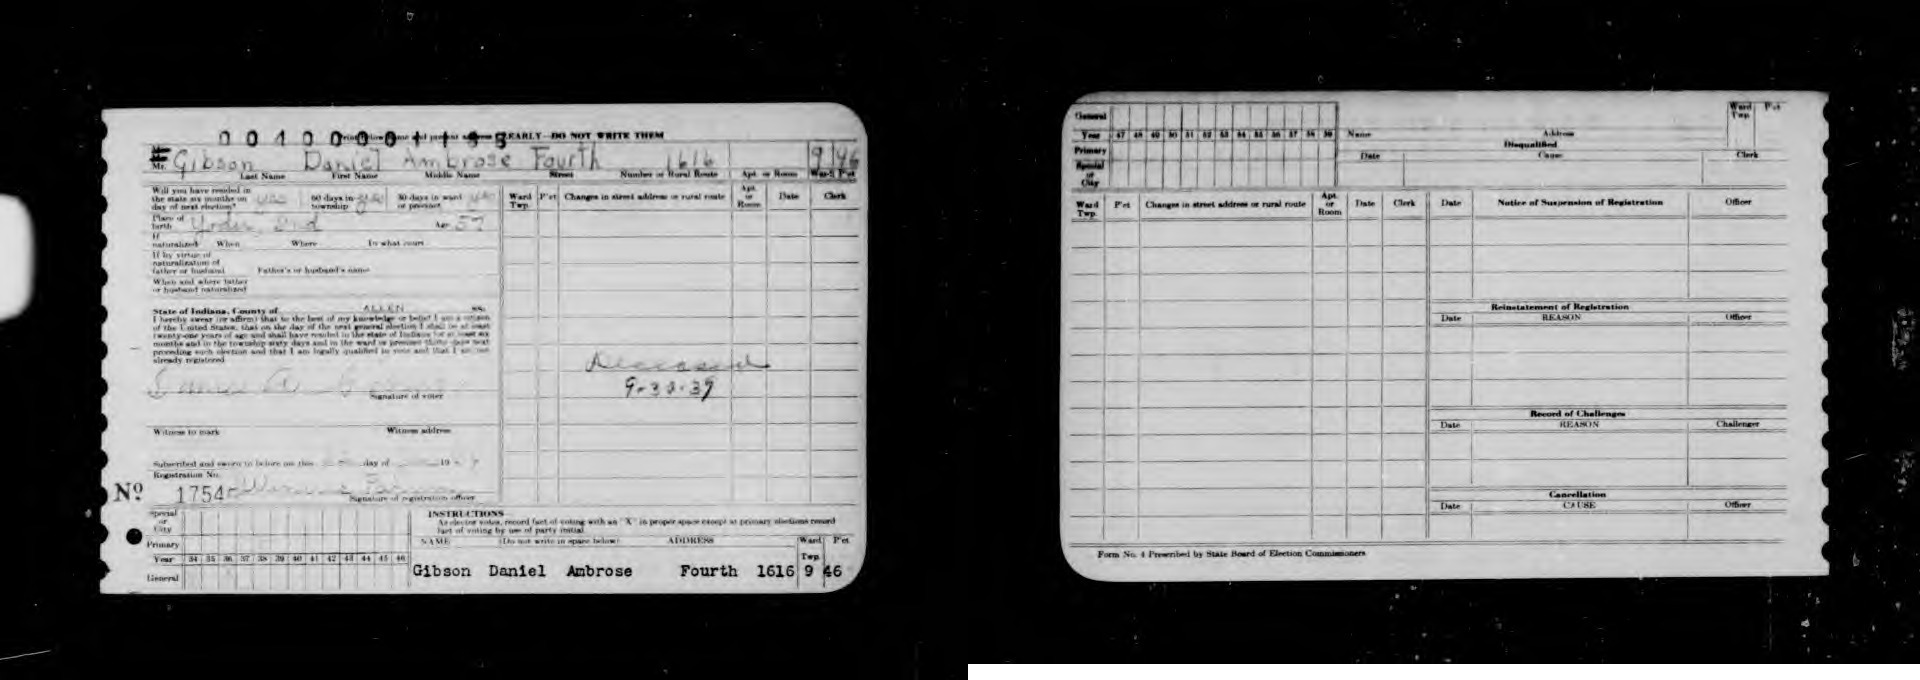 0010000+195
EARLY—DO NOT WRITE THEM
Mr. Gibson Daniel Ambrose Fourth 1616 9 46
Last Name First Name Middle Name Street Number or Rural Route Apt. or Room Ward P'ct
Will you have resided in
the state six months on yes 60 days in yes 30 days in ward yes
day of next election? township or precinct
Place of
birth Yoder Ind Age 57
If
naturalized When Where In what court
If by virtue of
naturalization of
father or husband Father's or husband's name
When and where father
or husband naturalized
State of Indiana, County of ALLEN ss:
I hereby swear (or affirm) that to the best of my knowledge or belief I am a citizen
of the United States, that on the day of the next general election I shall be at least
twenty-one years of age and shall have resided in the state of Indiana for at least six
months and in the township sixty days and in the ward or precinct thirty days next
preceding such election and that I am legally qualified to vote and that I am not
already registered
Signature of voter
Witness to mark Witness address
Subscribed and sworn to before me this day of 19
Registration No.
No. 1754
Signature of registration officer
Ward Twp. P'ct Changes in street address or rural route Apt. or Room Date Clerk
Deceased
9-30-39
Special
or
City
Primary
Year 34 35 36 37 38 39 40 41 42 43 44 45 46
General
INSTRUCTIONS
As elector votes, record fact of voting with an "X" in proper space except at primary elections record
fact of voting by use of party initial.
NAME (Do not write in space below) ADDRESS Ward Twp. P'ct
Gibson Daniel Ambrose Fourth 1616 9 46
General
Year 47 48 49 50 51 52 53 54 55 56 57 58 59
Primary
Special
or
City
Name Address Ward Twp. P'ct
Disqualified
Date Cause Clerk
Ward Twp. P'ct Changes in street address or rural route Apt. or Room Date Clerk
Date Notice of Suspension of Registration Officer
Reinstatement of Registration
Date REASON Officer
Record of Challenges
Date REASON Challenger
Cancellation
Date CAUSE Officer
Form No. 4 Prescribed by State Board of Election Commissioners